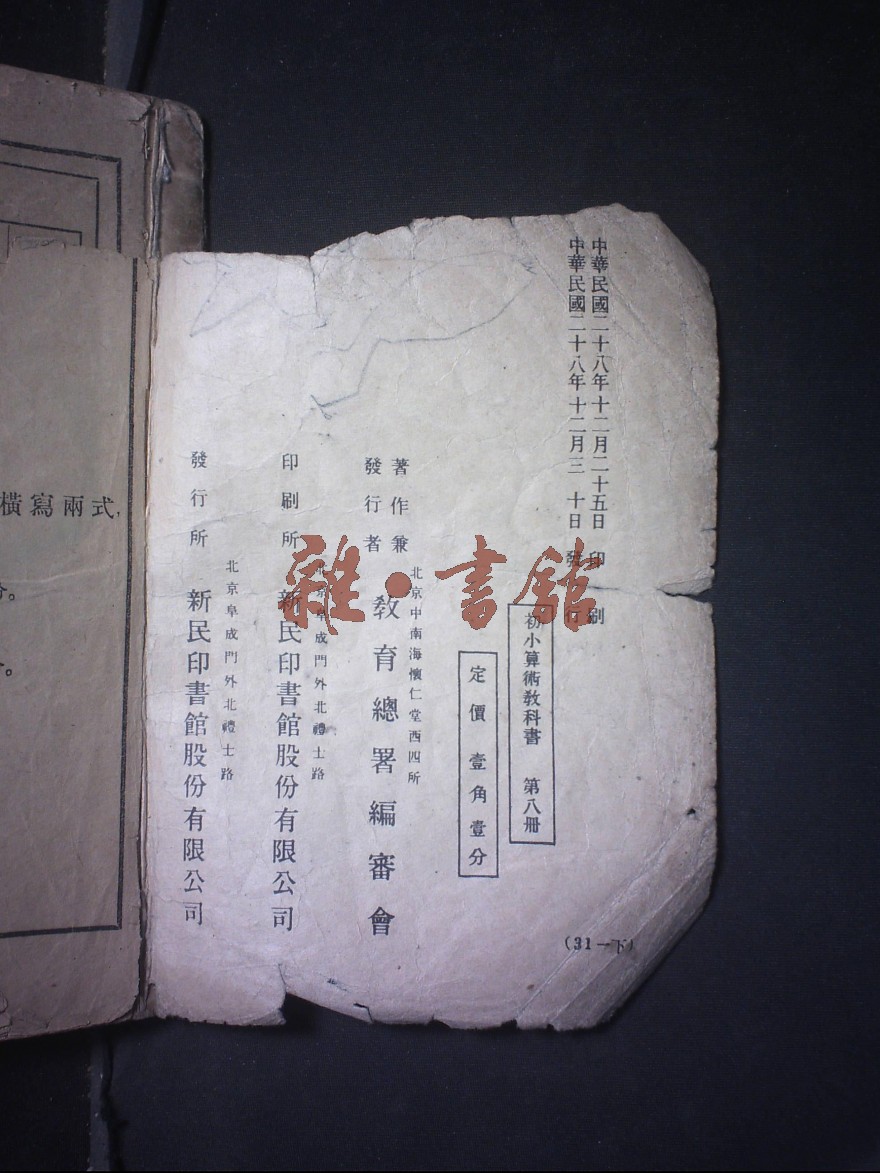 中華民國二十八年十二月二十五日 印刷
中華民國二十八年十二月三十日 發行
初小算術教科書 第八冊
定價壹角壹分
著作兼
發行者
北京中南海懷仁堂西四所
教育總署編審會
印刷所
北京阜成門外北禮士路
新民印書館股份有限公司
發行所
北京阜成門外北禮士路
新民印書館股份有限公司
(31—下)
橫寫兩式,
雜·書館